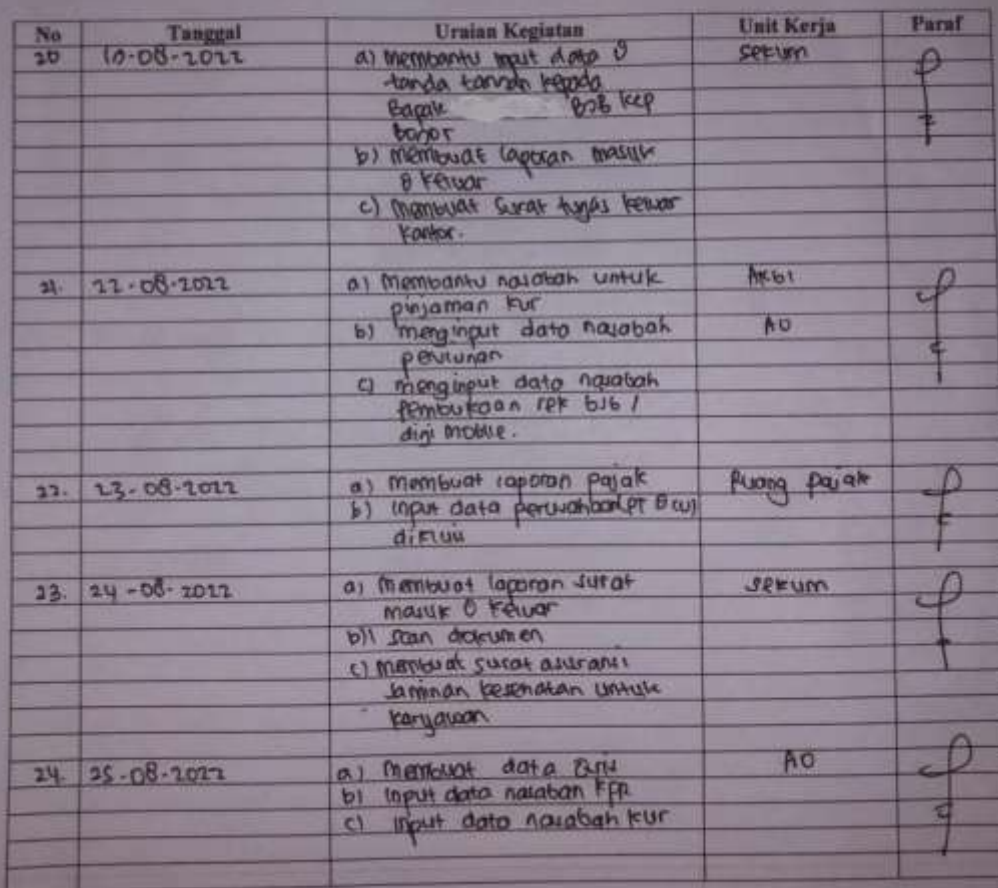 No Tanggal Uraian Kegiatan Unit Kerja Paraf
20 10-08-2022 a) Membantu input data & Sekum
tanda tangan kepada
Bapak BJB kcp
bonor
b) Membuat laporan masuk
& keluar
c) Membuat Surat tugas keluar
Kantor.
21. 22-08-2022 a) Membantu nasabah untuk
pinjaman kur
b) menginput data nasabah AO
c) menginput data nasabah
Pembukaan rek bjb /
digi mobile.
22. 23-08-2022 a) Membuat laporan pajak Ruang pajak
b) Input data (PT & CV)
23. 24-08-2022 a) Membuat laporan surat sekum
masuk & keluar
b) scan dokumen
c) Membuat surat asuransi
Jaminan kesehatan untuk
karyawan
24. 25-08-2022 a) Membuat data AO
b) Input data nasabah
c) input data nasabah kur